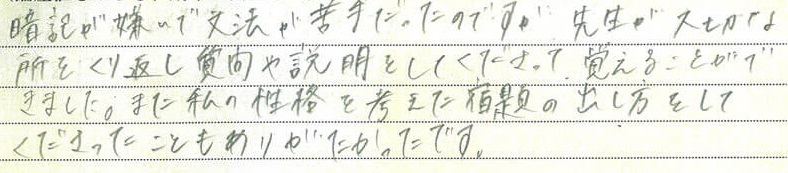 暗記が嫌いで文法が苦手だったのですが、先生が大切な
所をくり返し質問や説明をしてくださって、覚えることがで
きました。また私の性格を考えた宿題の出し方をして
くださったこともありがたかったです。